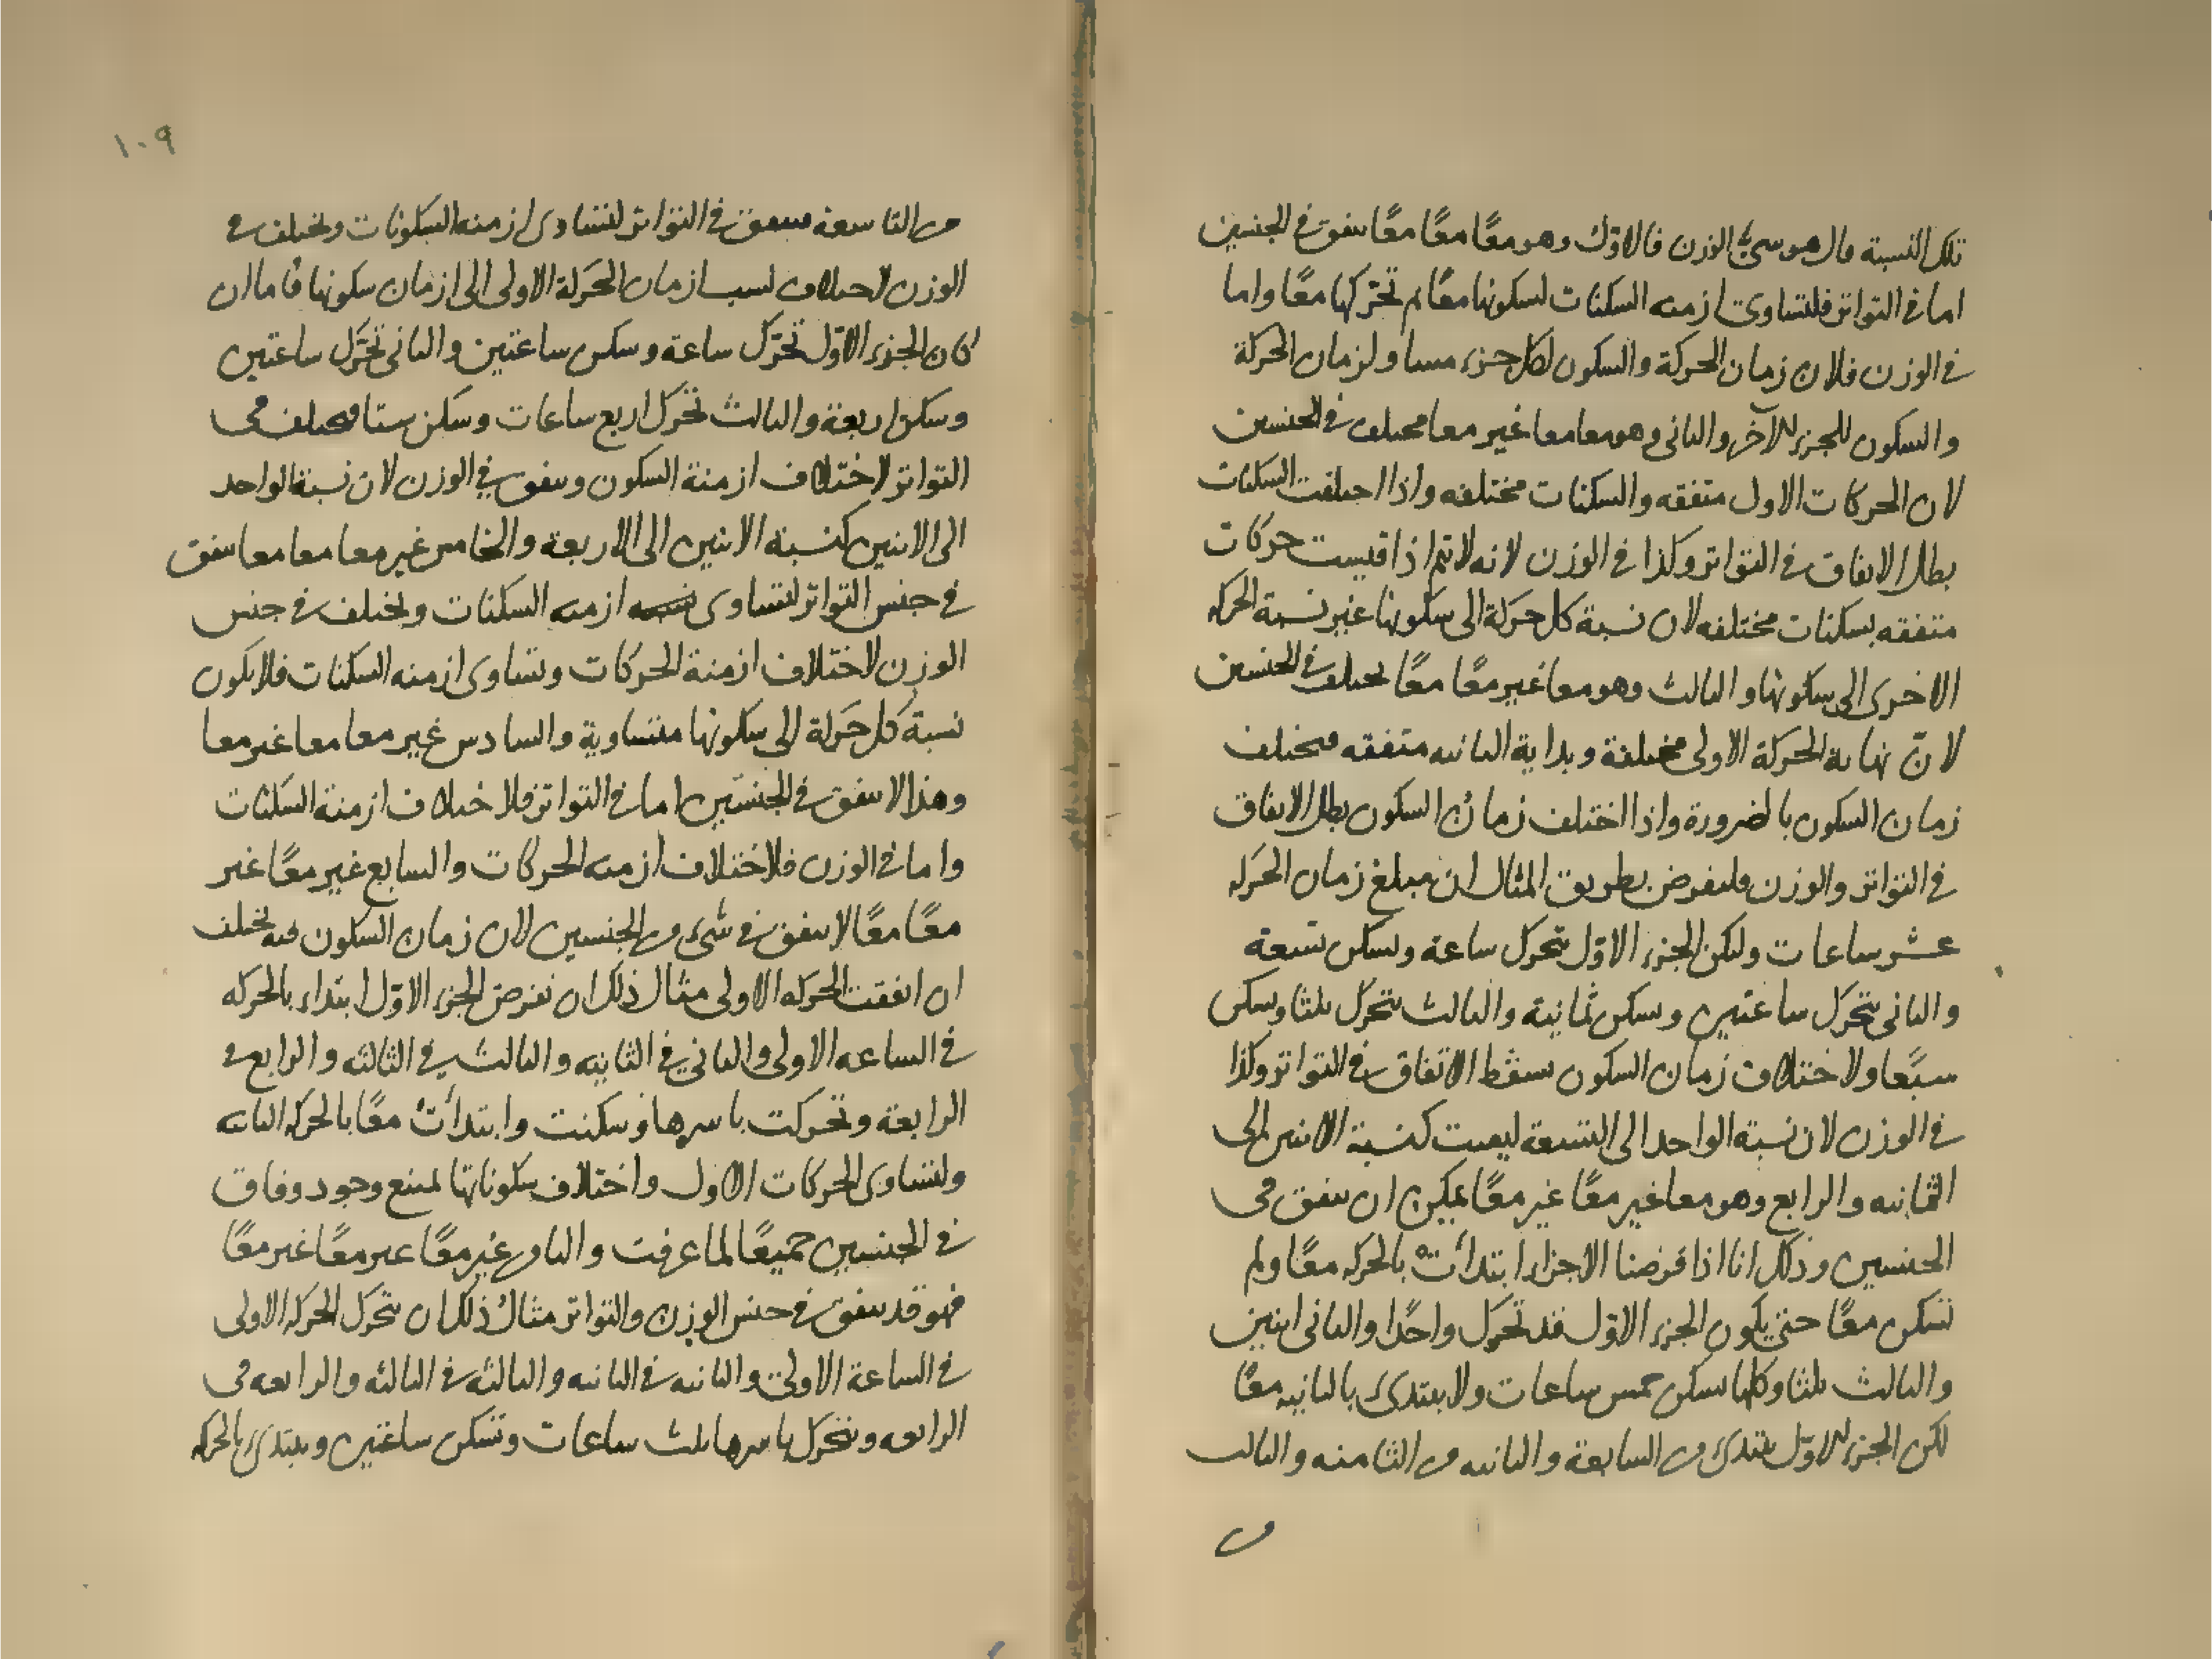 تلك النسبة قال هو سيئ الوزن فالاول وهو معًا معًا معًا معًا يتفق في الجنسين
اما في التواتر فلتساوى ازمنه السكنات لسكونها معًا ثم تحركها معًا واما
في الوزن فلان زمان الحركة والسكون لكل جزء مساو لزمان الحركة
والسكون للجزء الآخر والثانى وهو معا معا غير معا مختلف في الجنسين
لان الحركات الاول متفقه والسكنات مختلفه واذا اختلفت السكنات
بطل الاتفاق في التواتر وكذا في الوزن لانه لا تتم اذا قيست حركات
متفقه بسكنات مختلفه لان نسبة كل حركة الى سكونها غير نسبة الحركه
الاخرى الى سكونها والثالث وهو معا غير معًا معًا يختلف في الجنسين
لانّ نهاية الحركة الاولى مختلفة وبداية الثانيه متفقه فيختلف
زمان السكون بالضرورة واذا اختلف زمان السكون بطل الاتفاق
في التواتر والوزن فلنفرض بطريق المثال ان مبلغ زمان الحركه
عشر ساعات وليكن الجزء الاول يتحرك ساعة ويسكن تسعة
والثانى يتحرك ساعتين ويسكن ثمانية والثالث يتحرك ثلثا ويسكن
سبعًا ولاختلاف زمان السكون سقط الاتفاق في التواتر وكذا
في الوزن لان نسبة الواحد الى التسعة ليست كنسبة الاثنين الى
الثمانيه والرابع وهو معا غير معًا غير معًا يمكن ان يتفق فى
الجنسين وذلك انا اذا فرضنا الاجزاء ابتدأت بالحركه معًا ولم
تسكن معًا حتى يكون الجزء الاول قد تحرك واحدًا والثانى اثنين
والثالث ثلثا وكلها تسكن خمس ساعات ولا يبتدئ بالثانيه معًا
لكن الجزء الاول يبتدئ من السابعة والثانيه من الثامنه والثالث
من
١٠٩
من التاسعة يتفق في التواتر لتساوى ازمنه السكونات ويختلف في
الوزن لاختلاف نسب ازمان الحركة الاولى الى ازمان سكونها فاما ان
كان الجزء الاول تحرّك ساعة وسكن ساعتين والثانى تحرّك ساعتين
وسكن اربعة والثالث تحرك اربع ساعات وسكن ستا فيختلف فى
التواتر لاختلاف ازمنة السكون ويتفق في الوزن لان نسبة الواحد
الى الاثنين كنسبة الاثنين الى الاربعة والخامس غير معا معا معا يتفق
في جنس التواتر لتساوى ازمنه السكنات ويختلف في جنس
الوزن لاختلاف ازمنة الحركات وتساوى ازمنه السكنات فلا يكون
نسبة كل حركة الى سكونها متساوية والسادس غير معا معا غير معا
وهذا لا يتفق في الجنسين اما في التواتر فلاختلاف ازمنة السكنات
واما في الوزن فلاختلاف ازمنه الحركات والسابع غير معًا غير
معًا معًا لا يتفق في شىء من الجنسين لان زمان السكون فيه يختلف
ان اتفقت الحركه الاولى مثال ذلك ان نفرض الجزء الاول ابتداء بالحركه
في الساعه الاولى والثاني في الثانيه والثالث في الثالثه والرابع في
الرابعة وتحركت باسرها وسكنت وابتدأت معًا بالحركه الثانيه
ولتساوى الحركات الاول واختلاف سكوناتها يمتنع وجود وفاق
في الجنسين جميعًا لما عرفت والثامن غير معًا غير معًا غير معًا
فهو قد يتفق في جنس الوزن والتواتر مثال ذلك ان تتحرك الحركه الاولى
في الساعة الاولى والثانيه في الثانيه والثالثه في الثالثه والرابعه فى
الرابعه وتتحرك باسرها ثلث ساعات وتسكن ساعتين ويبتدئ بالحركه